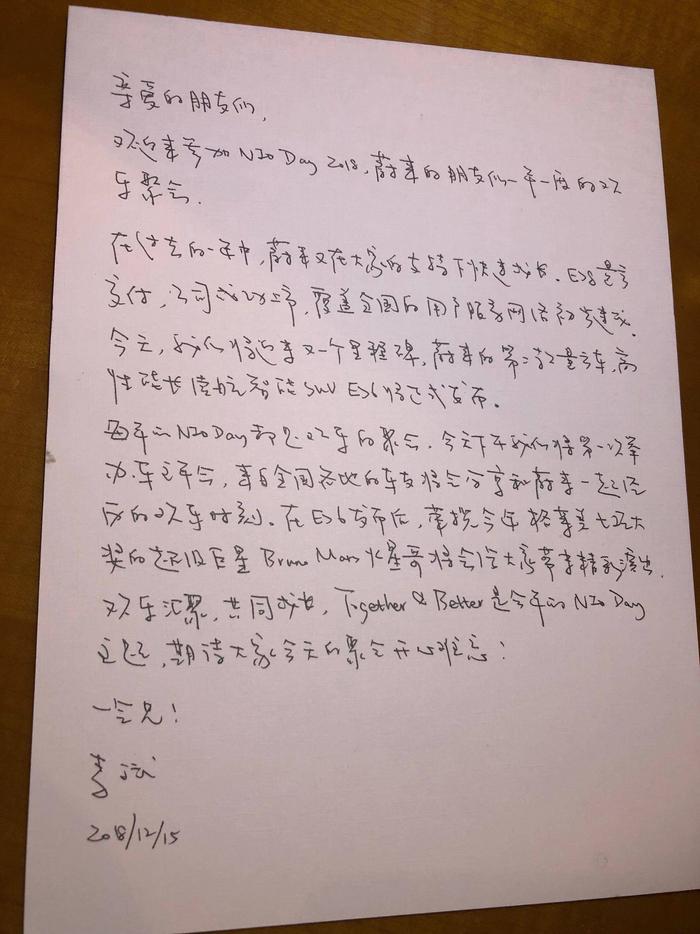 亲爱的朋友们,
欢迎来参加NIO Day 2018,蔚来的朋友们一年一度的欢
乐聚会.
在过去的一年中,蔚来又在大家的支持下快速成长. ES8量产
交付,公司成功上市,覆盖全国的用户服务网络初步建成.
今天,我们将迎来又一个里程碑,蔚来的第二款量产车,高
性能长续航智能SUV ES6将正式发布。
每年的NIO Day都是欢乐的聚会.今天下午我们将第一次举
办车主年会,来自全国各地的车友将会分享和蔚来一起经
历的欢乐时刻.在ES6发布后,荣揽今年格莱美七项大
奖的超级巨星Bruno Mars火星哥将会给大家带来精彩演出.
欢乐汇聚,共同成长,Together & Better是今年的NIO Day
主题,期待大家今天的聚会开心难忘!
一会见!
李斌
2018/12/15